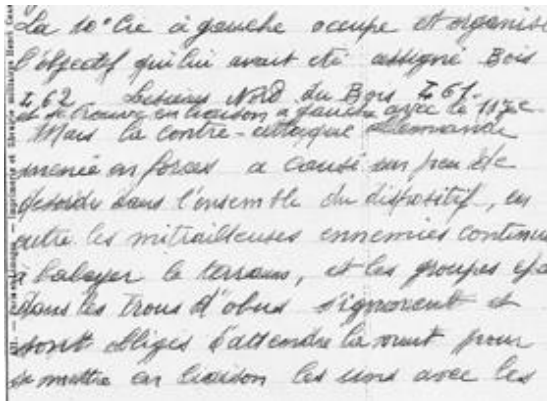 La 10e Cie à gauche occupe et organise
l'objectif qui lui avait été assigné Bois
Z 62 Lisière Nord du Bois Z 61
et se trouve en liaison à gauche avec le 117e
Mais la contre-attaque allemande
menée en forces a causé un peu de
désordre dans l'ensemble du dispositif, en
outre les mitrailleuses ennemies continue
à balayer le terrain, et les groupes épa
dans les trous d'obus s'ignorent et
sont obligés d'attendre la nuit pour
se mettre en liaison les uns avec les
Imprimerie et librairie militaires Henri